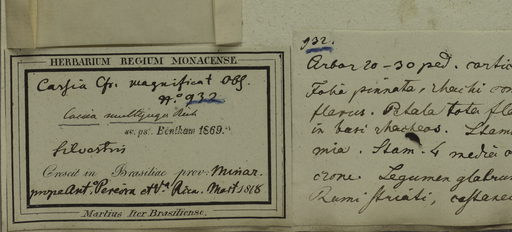 HERBARIUM REGIUM MONACENSE.
Cassia Cfr. magnificat Obs.
No. 932
Cassia multijuga Rich
sec. ps. Bentham 1869.
Silvestris
Crescit in Brasiliae prov. Minar.
prope Ant.o Pereira et Va Rica. Mart. 1818
Martius Iter Brasiliense.
932.
Arbor 20-30 ped. cortic
Folia pinnata, rhachi
flavus. Petala tota fla
in basi rhacheos. Stam
mia. Stam. 4 media
crone. Legumen glabrum
Rami striati, castanei